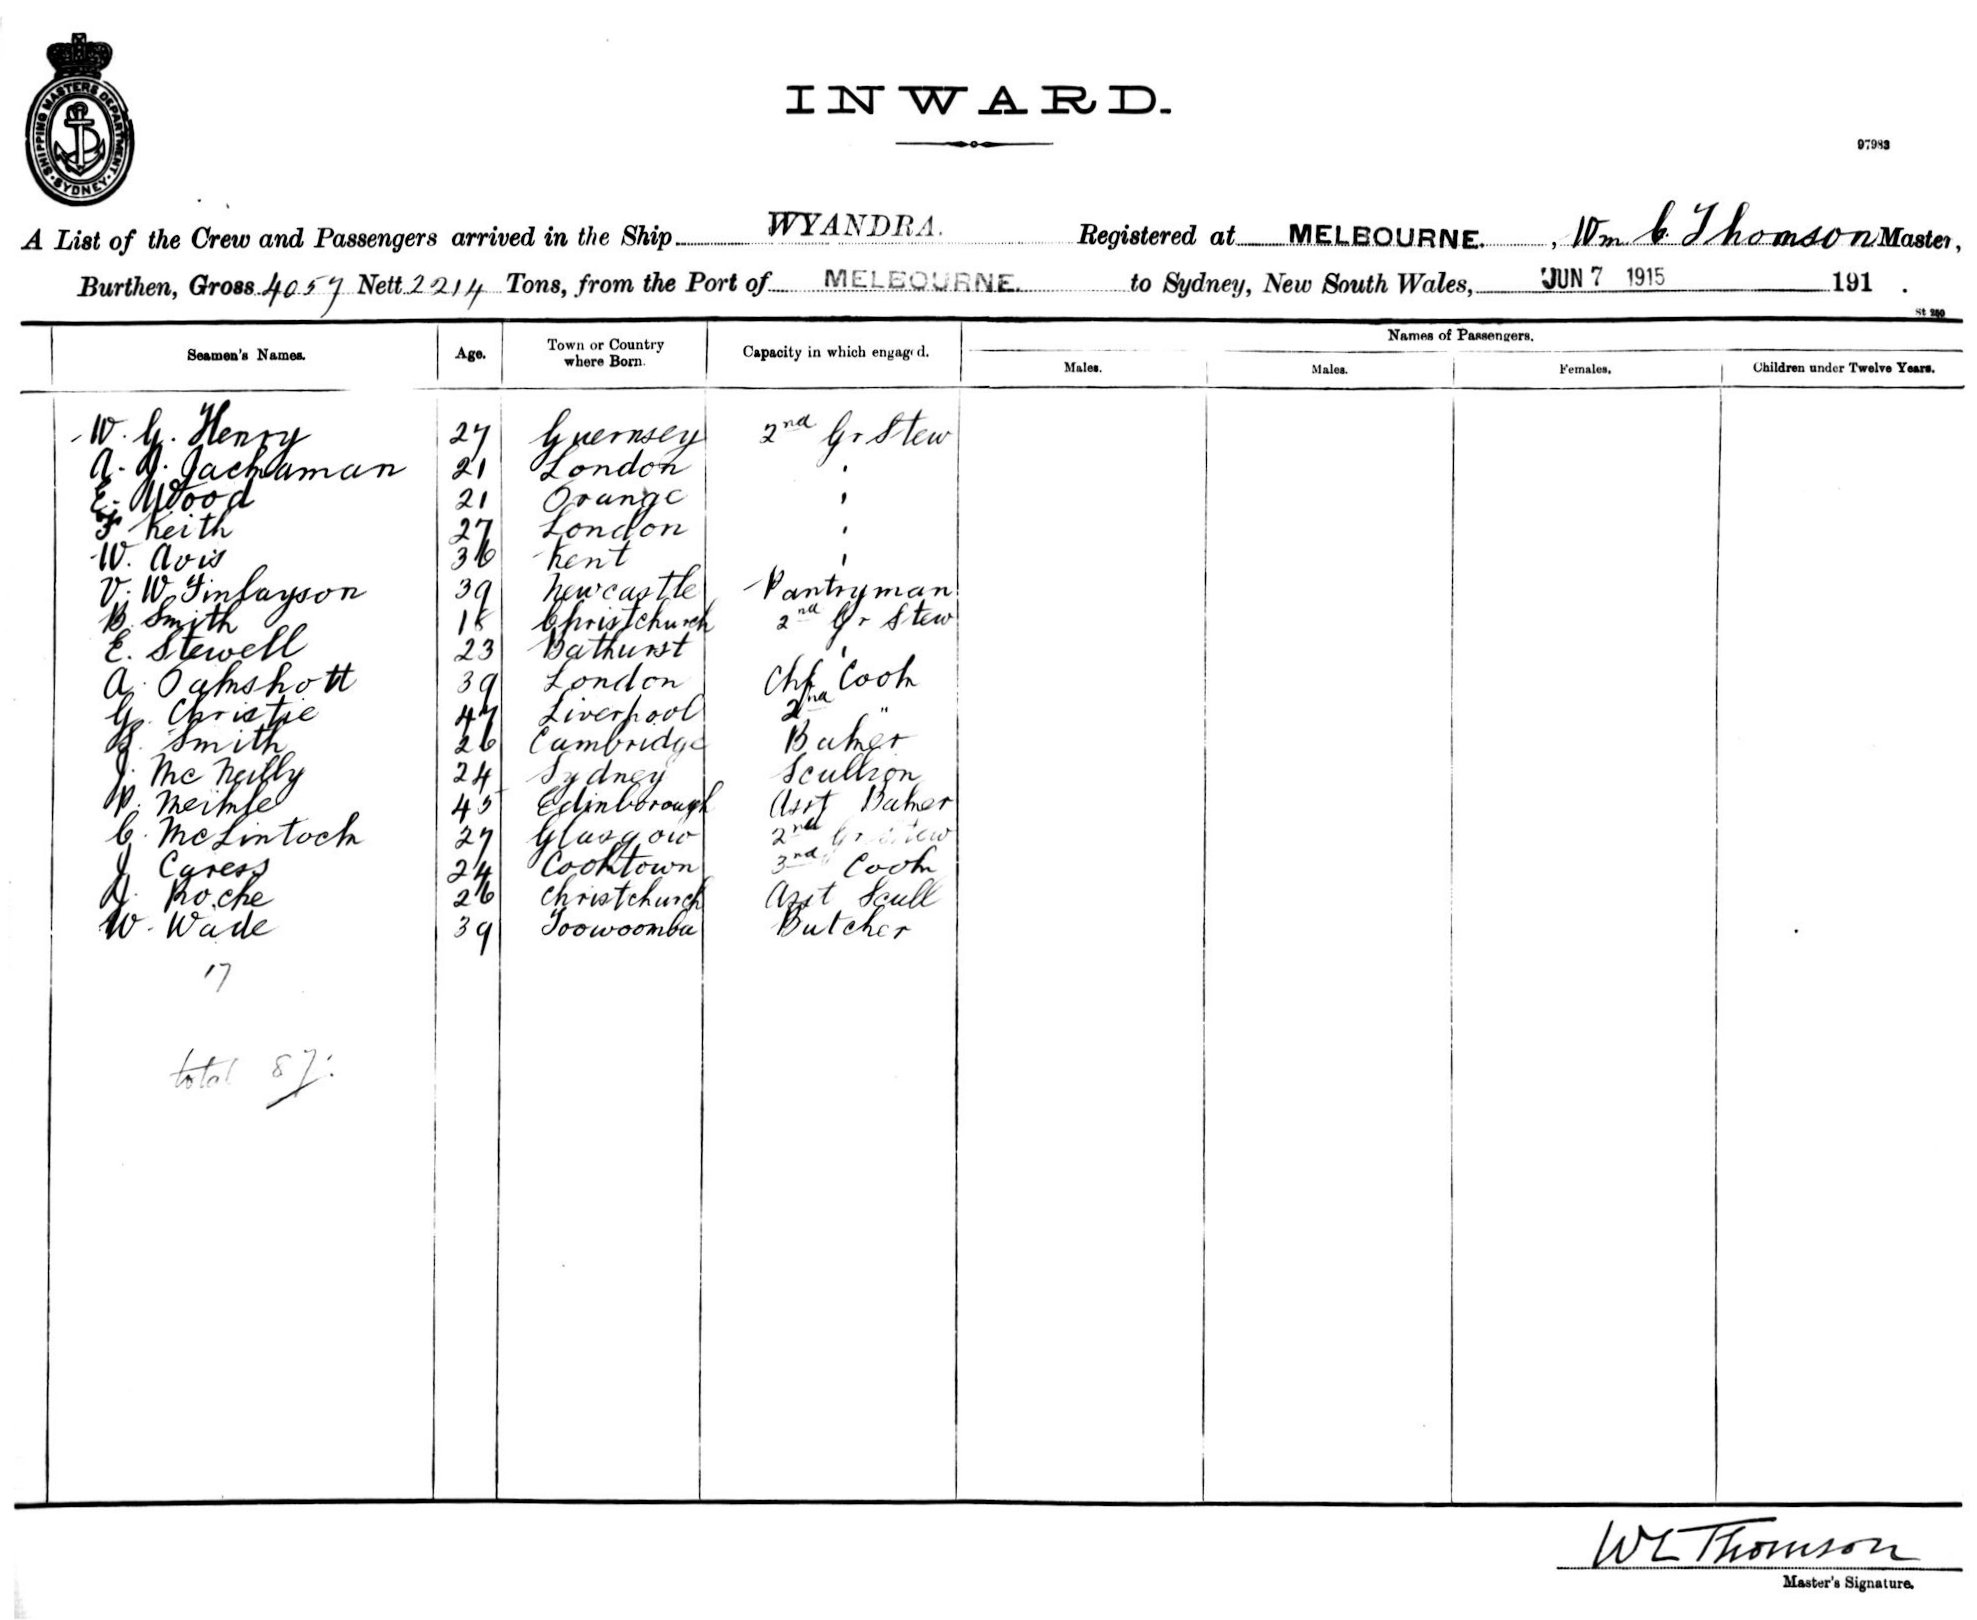 SHIPPING MASTERS DEPARTMENT. SYDNEY.
INWARD.
97983
A List of the Crew and Passengers arrived in the Ship WYANDRA. Registered at MELBOURNE. , Wm C. Thomson Master,
Burthen, Gross 4057 Nett 2214 Tons, from the Port of MELBOURNE. to Sydney, New South Wales, JUN 7 1915 191 .
St 250
Seamen's Names. Age. Town or Country where Born. Capacity in which engaged. Names of Passengers.
Males. Males. Females. Children under Twelve Years.
W. G. Henry 27 Guernsey 2nd Gr Stew
A. J. Jachaman 21 London "
E. Wood 21 Orange "
F Keith 27 London "
W. Avis 36 Kent "
V. W Finlayson 39 Newcastle Pantryman
B. Smith 18 Christchurch 2nd Gr Stew
E. Stewell 23 Bathurst "
A. Oakshott 39 London Chf Cook
G. Christie 47 Liverpool 2nd "
Smith 26 Cambridge Baker
J. McNeilly 24 Sydney Scullion
P. Meikle 45 Edinborough Asst Baker
C. McLintock 27 Glasgow 2nd Gr Stew
J Caress 24 Cooktown 3rd Cook
Roche 26 Christchurch Asst Scull
W. Wade 39 Toowoomba Butcher
17
total 87.
WC Thomson
Master's Signature.